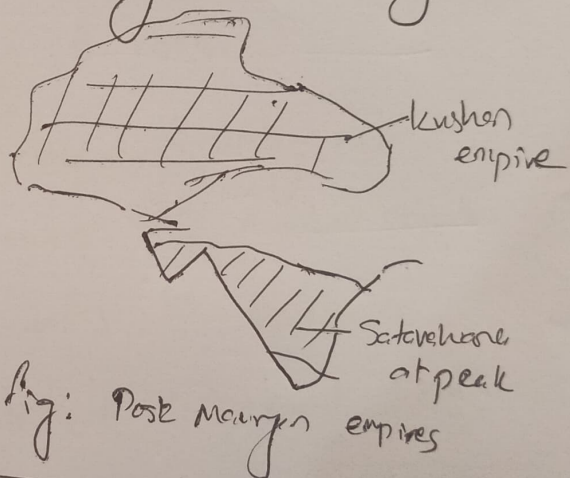 Kushan
empire
Satavahana
at peak
fig: Post Mauryan empires